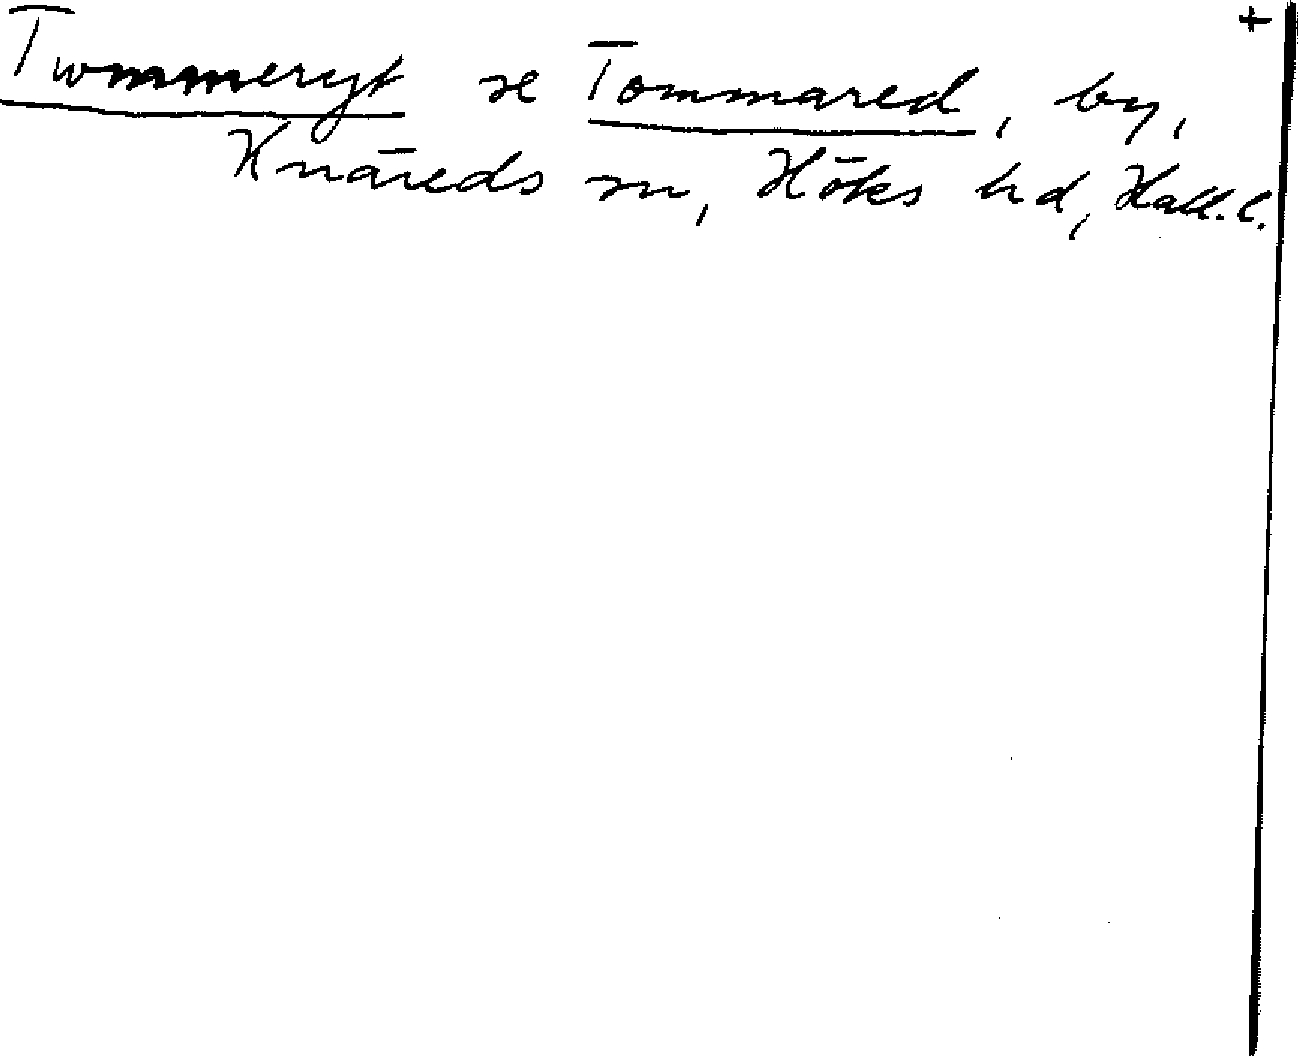 Twmmeryt se Tommared, by, +
Knäreds sn, Höks hd, Hall. l.